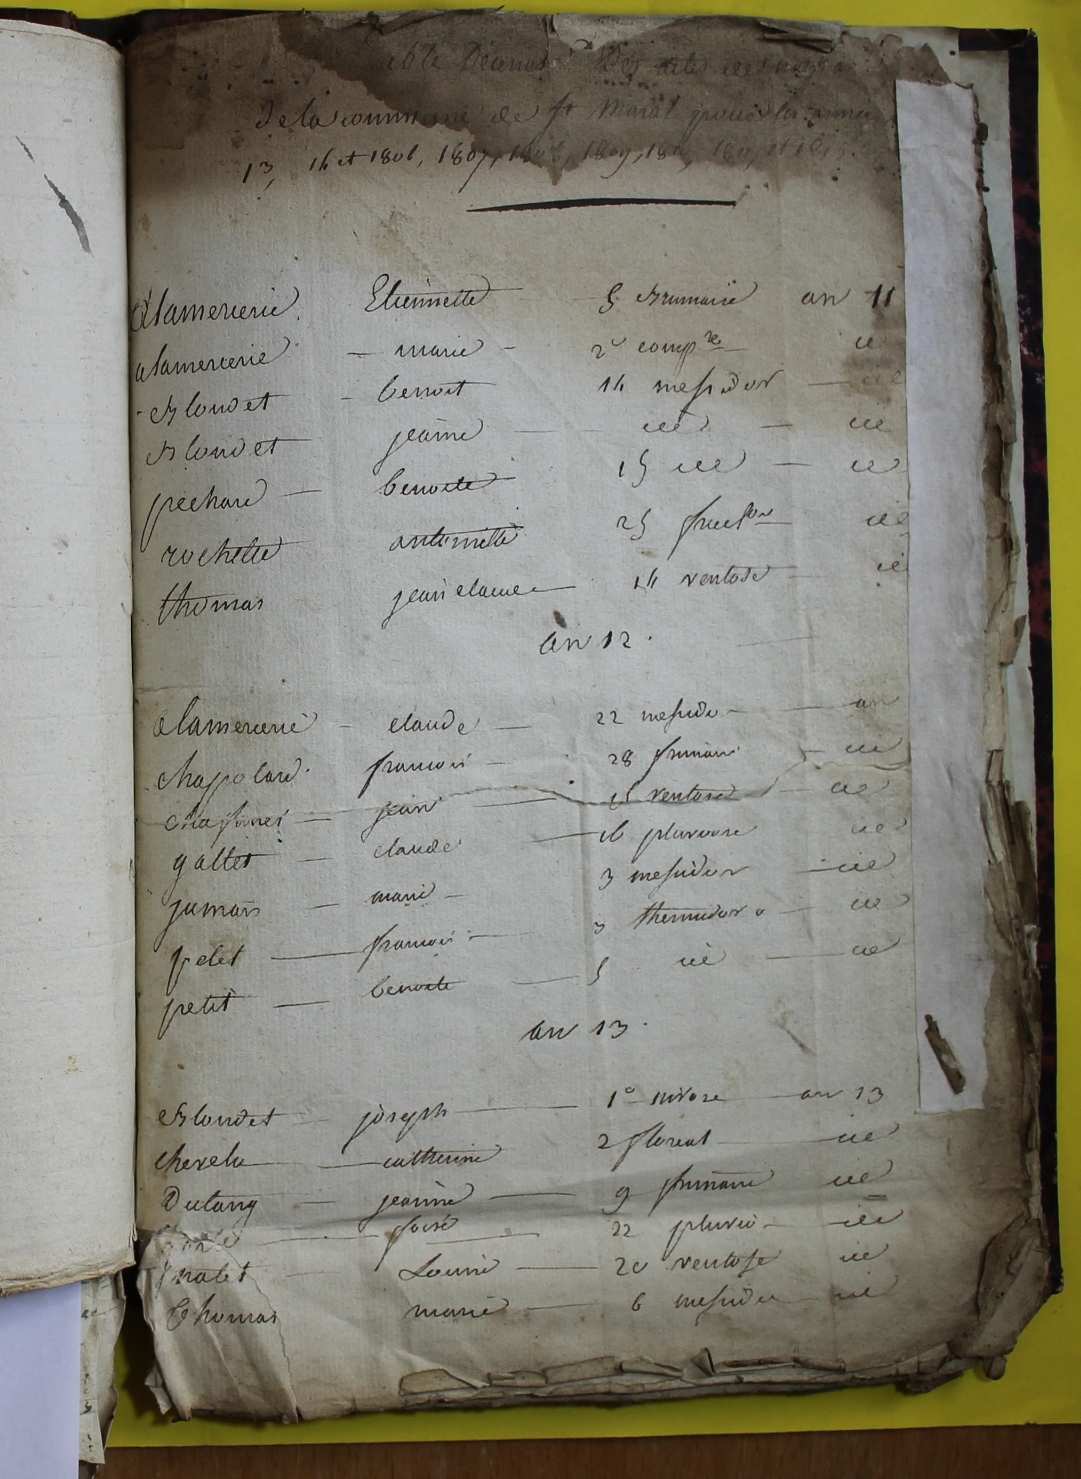 de la commune de st Marat pour les années
13, 14 et 1806, 1807, 1808, 1809, 1810,
alamercerie Etiennette 5 Brumaire an 11
alamercerie marie 2e comp re id
Blondet benoit 14 messidor id
Blondet jeanne id id
pechard benoite 15 id id
rochette antoinette 25 fruct or id
thomas jean claude 14 ventose id
an 12.
alamercerie claude 22 messidor an
chapolard françois 28 frimaire id
jean 15 ventose id
gallet claude 16 pluviose id
jumars marie 3 messidor id
pelet françois 3 thermidor id
petit benoite 5 id id
an 13.
Blondet joseph 1o nivose an 13
chevela catherine 2 floreal id
Dutang jeanne 9 frimaire id
22 pluvio id
Louise 20 ventose id
Thomas marie 6 messidor id